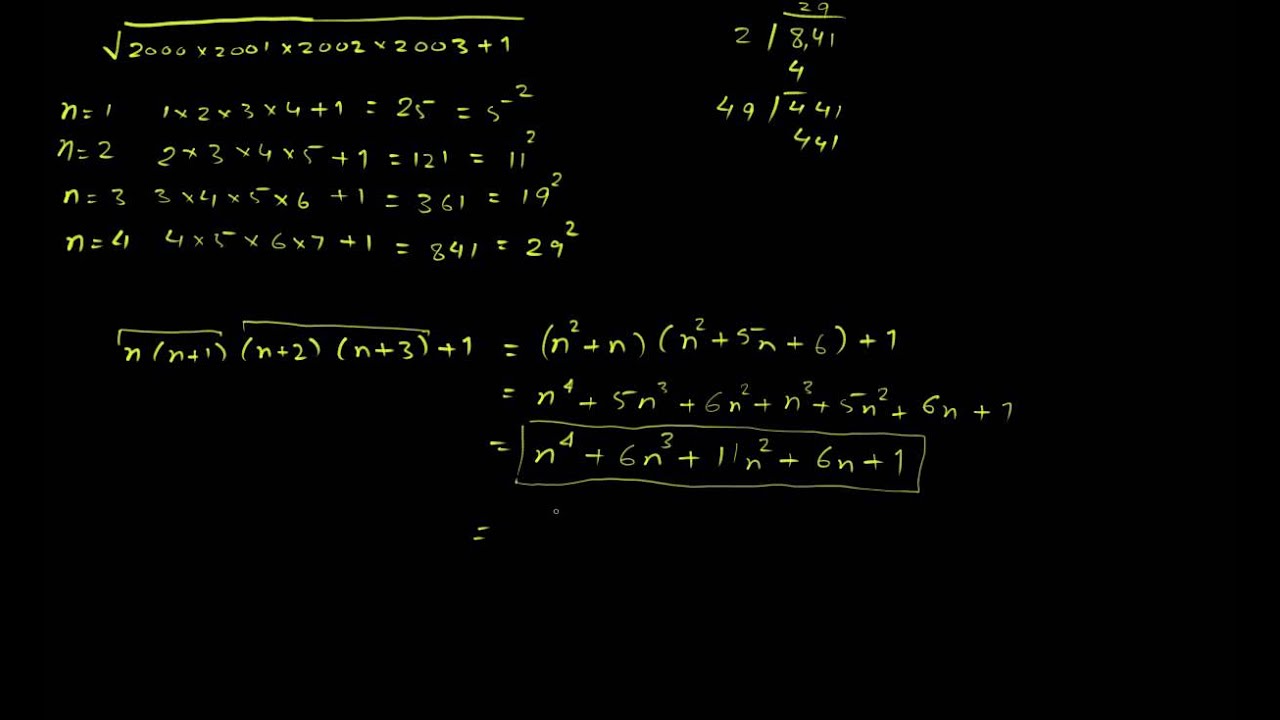 √2000×2001×2002×2003+1
n=1 1×2×3×4+1 = 25 = 5²
n=2 2×3×4×5+1 = 121 = 11²
n=3 3×4×5×6+1 = 361 = 19²
n=4 4×5×6×7+1 = 841 = 29²
29
2 / 8,41
4
49 / 441
441
n(n+1)(n+2)(n+3)+1 = (n²+n)(n²+5n+6)+1
= n⁴+5n³+6n²+n³+5n²+6n+1
= n⁴+6n³+11n²+6n+1
=